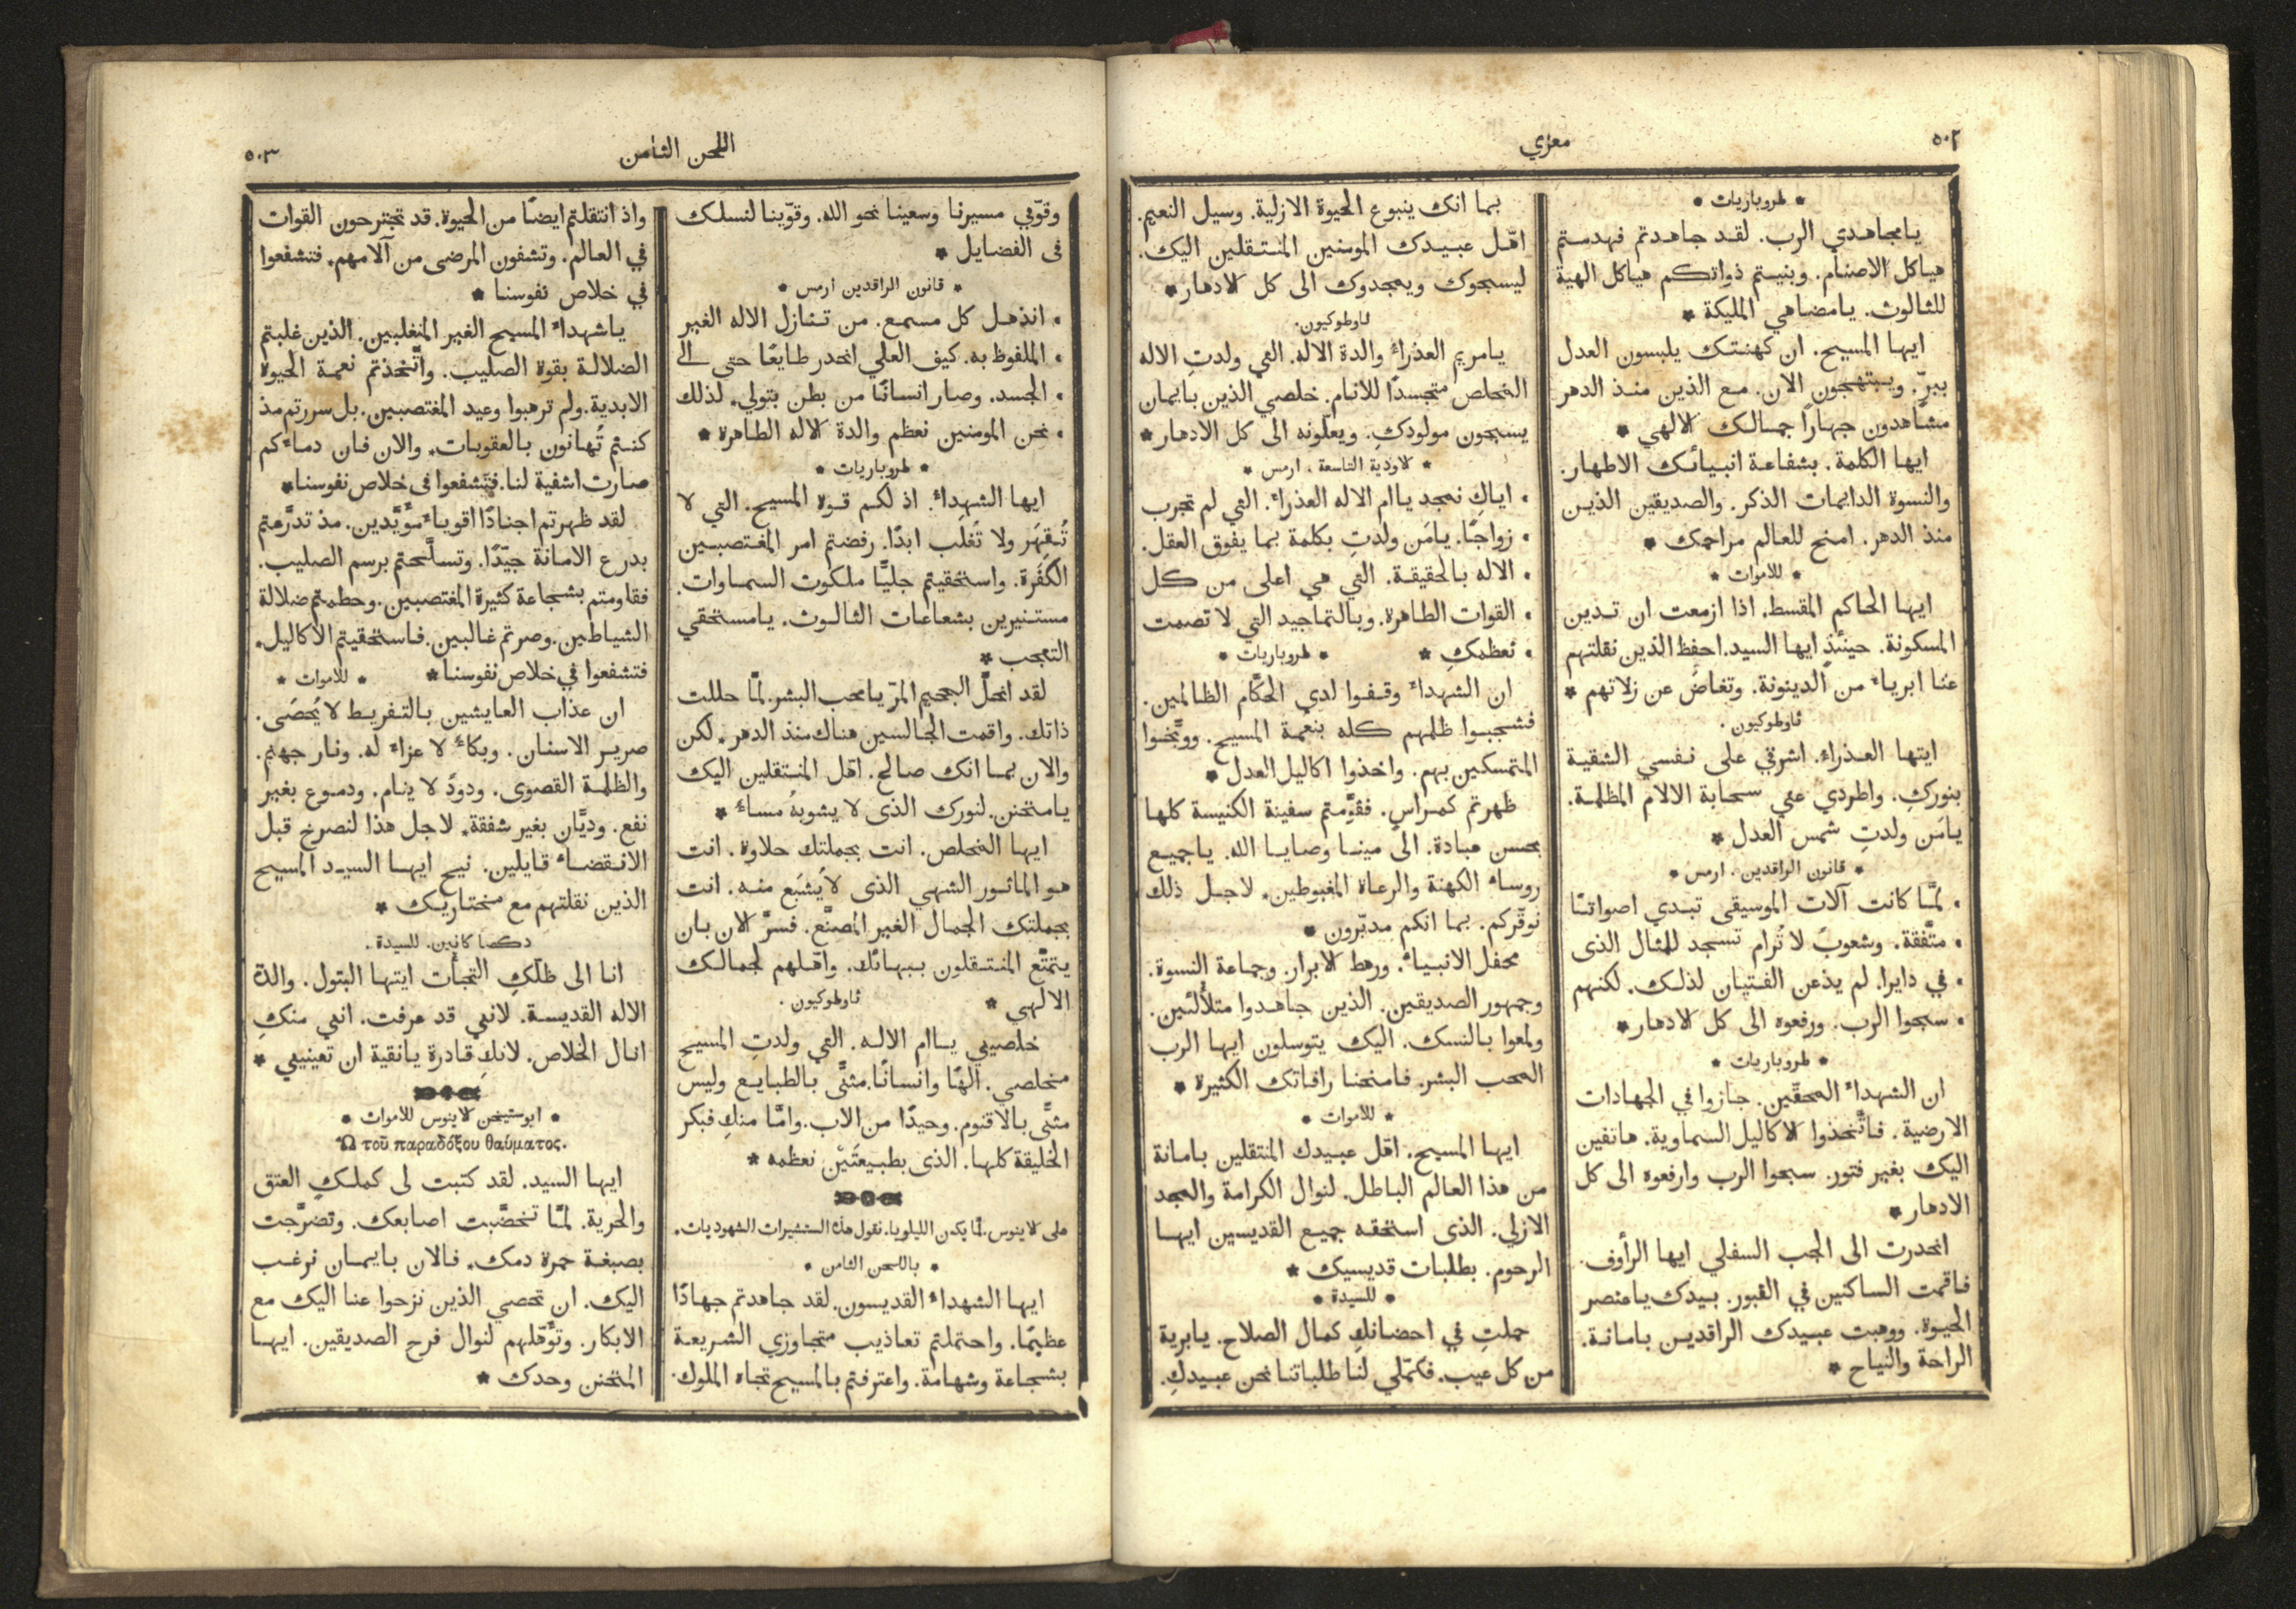 ٥٠٢
معزي
* طروباريات *
يامجاهدي الرب. لقد جاهدتم فهدمتم
هياكل الاصنام. وبنيتم ذواتكم هياكل الهية
للثالوث. يامضاهي المليكة *
ايها المسيح. ان كهنتك يلبسون العدل
ببرّ. ويبتهجون الان. مع الذين منذ الدهر
مشاهدون جهاراً جمالك الالهي *
ايها الكلمة. بشفاعة انبيائك الاطهار.
والنسوة الدايمات الذكر. والصديقين الذين
منذ الدهر. امنح للعالم مراحمك *
* للاموات *
ايها الحاكم المقسط. اذا ازمعت ان تدين
المسكونة. حينئذٍ ايها السيد. احفظ الذين نقلتهم
عنا ابرياء من الدينونة. وتغاضَ عن زلاتهم *
ثاوطوكيون.
ايتها العذراء. اشرقي على نفسي الشقية
بنوركِ. واطردي عني سحابة الالام المظلمة.
يامَن ولدتِ شمس العدل *
* قانون الراقدين. ارمس *
• لمَّا كانت آلات الموسيقى تبدي اصواتًا
• متَّفقة. وشعوبٌ لا تُرام تسجد للمثال الذى
• في دايرا. لم يذعن الفتيان لذلك. لكنهم
• سبحوا الرب. ورفعوه الى كل الادهار *
* طروباريات *
ان الشهداء المحقّين. جازوا في الجهادات
الارضية. فاتَّخذوا الاكاليل السماوية. هاتفين
اليك بغير فتور. سبحوا الرب وارفعوه الى كل
الادهار *
انحدرت الى الجب السفلي ايها الرأوف.
فاقمت الساكنين في القبور. بيدك يامنصر
الحيوة. ووهبت عبيدك الراقدين بامانة.
الراحة والنياح *
بما انك ينبوع الحيوة الازلية. وسيل النعيم.
اهّل عبيدك المومنين المنتقلين اليك.
ليسبحوك ويمجدوك الى كل الادهار *
ثاوطوكيون.
يامريم العذراء والدة الاله. التي ولدتِ الاله
المخلص متجسدًا للانام. خلصي الذين بايمان
يسبحون مولودكِ. ويعلّونه الى كل الادهار *
* الاودية التاسعة. ارمس *
• اياكِ نمجد ياام الاله العذراء. التي لم تجرب
• زواجًا. يامَن ولدتِ بكلمة بما يفوق العقل.
• الاله بالحقيقة. التي هي اعلى من كل
• القوات الطاهرة. وبالتماجيد التي لا تصمت
• نعظمكِ * * طروباريات *
ان الشهداء وقفوا لدى الحكَّام الظالمين.
فشجبوا ظلمهم كله بنعمة المسيح. ووبَّخوا
المتمسكين بهم. واخذوا اكاليل العدل *
ظهرتم كمراسٍ. فقوَّمتم سفينة الكنيسة كلها
بحسن عبادة. الى مينا وصايا الله. ياجميع
روساء الكهنة والرعاة المغبوطين. لاجل ذلك
نوقّركم. بما انكم مدبّرون *
محفل الانبياء. ورهط الابرار. وجماعة النسوة.
وجمهور الصديقين. الذين جاهدوا متلألئين.
ولمعوا بالنسك. اليك يتوسلون ايها الرب
المحب البشر. فامنحنا رافاتك الكثيرة *
* للاموات *
ايها المسيح. اهّل عبيدك المنتقلين بامانة
من هذا العالم الباطل. لنوال الكرامة والمجد
الازلي. الذى استحقه جميع القديسين ايها
الرحوم. بطلبات قديسيك *
* للسيدة *
حملتِ في احضانكِ كمال الصلاح. يابرية
من كل عيب. فكمّلي لنا طلباتنا نحن عبيدكِ.
اللحن الثامن
٥٠٣
وقوّمي مسيرنا وسعينا نحو الله. وقوّينا لنسلك
فى الفضايل *
* قانون الراقدين ارمس *
• انذهل كل مسمع. من تنازل الاله الغير
• الملفوظ به. كيف العلي انحدر طايعًا حتى الى
• الجسد. وصار انسانًا من بطن بتولي. لذلك
• نحن المومنين نعظم والدة الاله الطاهرة *
* طروباريات *
ايها الشهداء. اذ لكم قوة المسيح. التي لا
تُقهَر ولا تُغلَب ابدًا. رفضتم امر المغتصبين
الكفَرة. واستحقيتم جليًّا ملكوت السماوات.
مستنيرين بشعاعات الثالوث. يامستحقي
التعجب *
لقد انحلَّ الجحيم المرّ يامحب البشر. لمَّا حللت
ذاتك. واقمت الجالسين هناك منذ الدهر. لكن
والان بما انك صالح. اهل المنتقلين اليك
يامتحنن. لنورك الذى لا يشوبهُ مساء *
ايها المخلص. انت بجملتك حلاوة. انت
هو الماثور الشهي الذى لا يُشبَع منه. انت
بجملتك الجمال الغير المصنَّع. فسرَّ الان بان
يتمتّع المنتقلون ببهائك. واهّلهم لجمالك
الالهي * ثاوطوكيون.
خلصيني ياام الاله. التي ولدتِ المسيح
مخلصي. الهًا وانسانًا. مثنَّى بالطبايع وليس
مثنَّى بالاقنوم. وحيدًا من الاب. وامَّا منكِ فبكر
الخليقة كلها. الذى بطبيعتَيْن نعظمه *
على الاينوس. لمَّا يكون الليلويا. نقول هذه الستشيرات الشهوديات.
* باللحن الثامن *
ايها الشهداء القديسون. لقد جاهدتم جهادًا
عظيمًا. واحتملتم تعاذيب متجاوزي الشريعة
بشجاعة وشهامة. واعترفتم بالمسيح تجاه الملوك.
واذ انتقلتم ايضًا من الحيوة. قد تجترحون القوات
في العالم. وتشفون المرضى من آلامهم. فتشفعوا
في خلاص نفوسنا *
ياشهداء المسيح الغير المنغلبين. الذين غلبتم
الضلالة بقوة الصليب. واتَّخذتم نعمة الحيوة
الابدية. ولم ترهبوا وعيد المغتصبين. بل سررتم مذ
كنتم تُهانون بالعقوبات. والان فان دماءكم
صارت اشفية لنا. فتشفعوا فى خلاص نفوسنا *
لقد ظهرتم اجنادًا اقوياء مؤيَّدين. مذ تدرَّعتم
بدرع الامانة جيّدًا. وتسلَّحتم برسم الصليب.
فقاومتم بشجاعة كثيرة المغتصبين. وحطمتم ضلالة
الشياطين. وصرتم غالبين. فاستحقيتم الاكاليل.
فتشفعوا في خلاص نفوسنا * * للاموات *
ان عذاب العايشين بالتفريط لا يُحصَى.
صرير الاسنان. وبكاءٌ لا عزاء له. ونار جهنم.
والظلمة القصوى. ودودٌ لا ينام. ودموع بغير
نفع. وديَّان بغير شفقة. لاجل هذا لنصرخ قبل
الانقضاء قايلين. نيح ايها السيد المسيح
الذين نقلتهم مع مختاريك *
دكصا كانين. للسيدة.
انا الى ظلّكِ التجأت ايتها البتول. والدة
الاله القديسة. لانني قد عرفت. انني منكِ
انال الخلاص. لانكِ قادرة يانقية ان تعينيني *
* ابوستيخن الاينوس للاموات *
Ὢ τοῦ παραδόξου θαύματος.
ايها السيد. لقد كتبت لى كملكٍ العتق
والحرية. لمَّا تخضَّبت اصابعك. وتضرَّجت
بصبغة حمرة دمك. فالان بايمان نرغب
اليك. ان تحصي الذين نزحوا عنا اليك مع
الابكار. وتؤهّلهم لنوال فرح الصديقين. ايها
المتحنن وحدك *